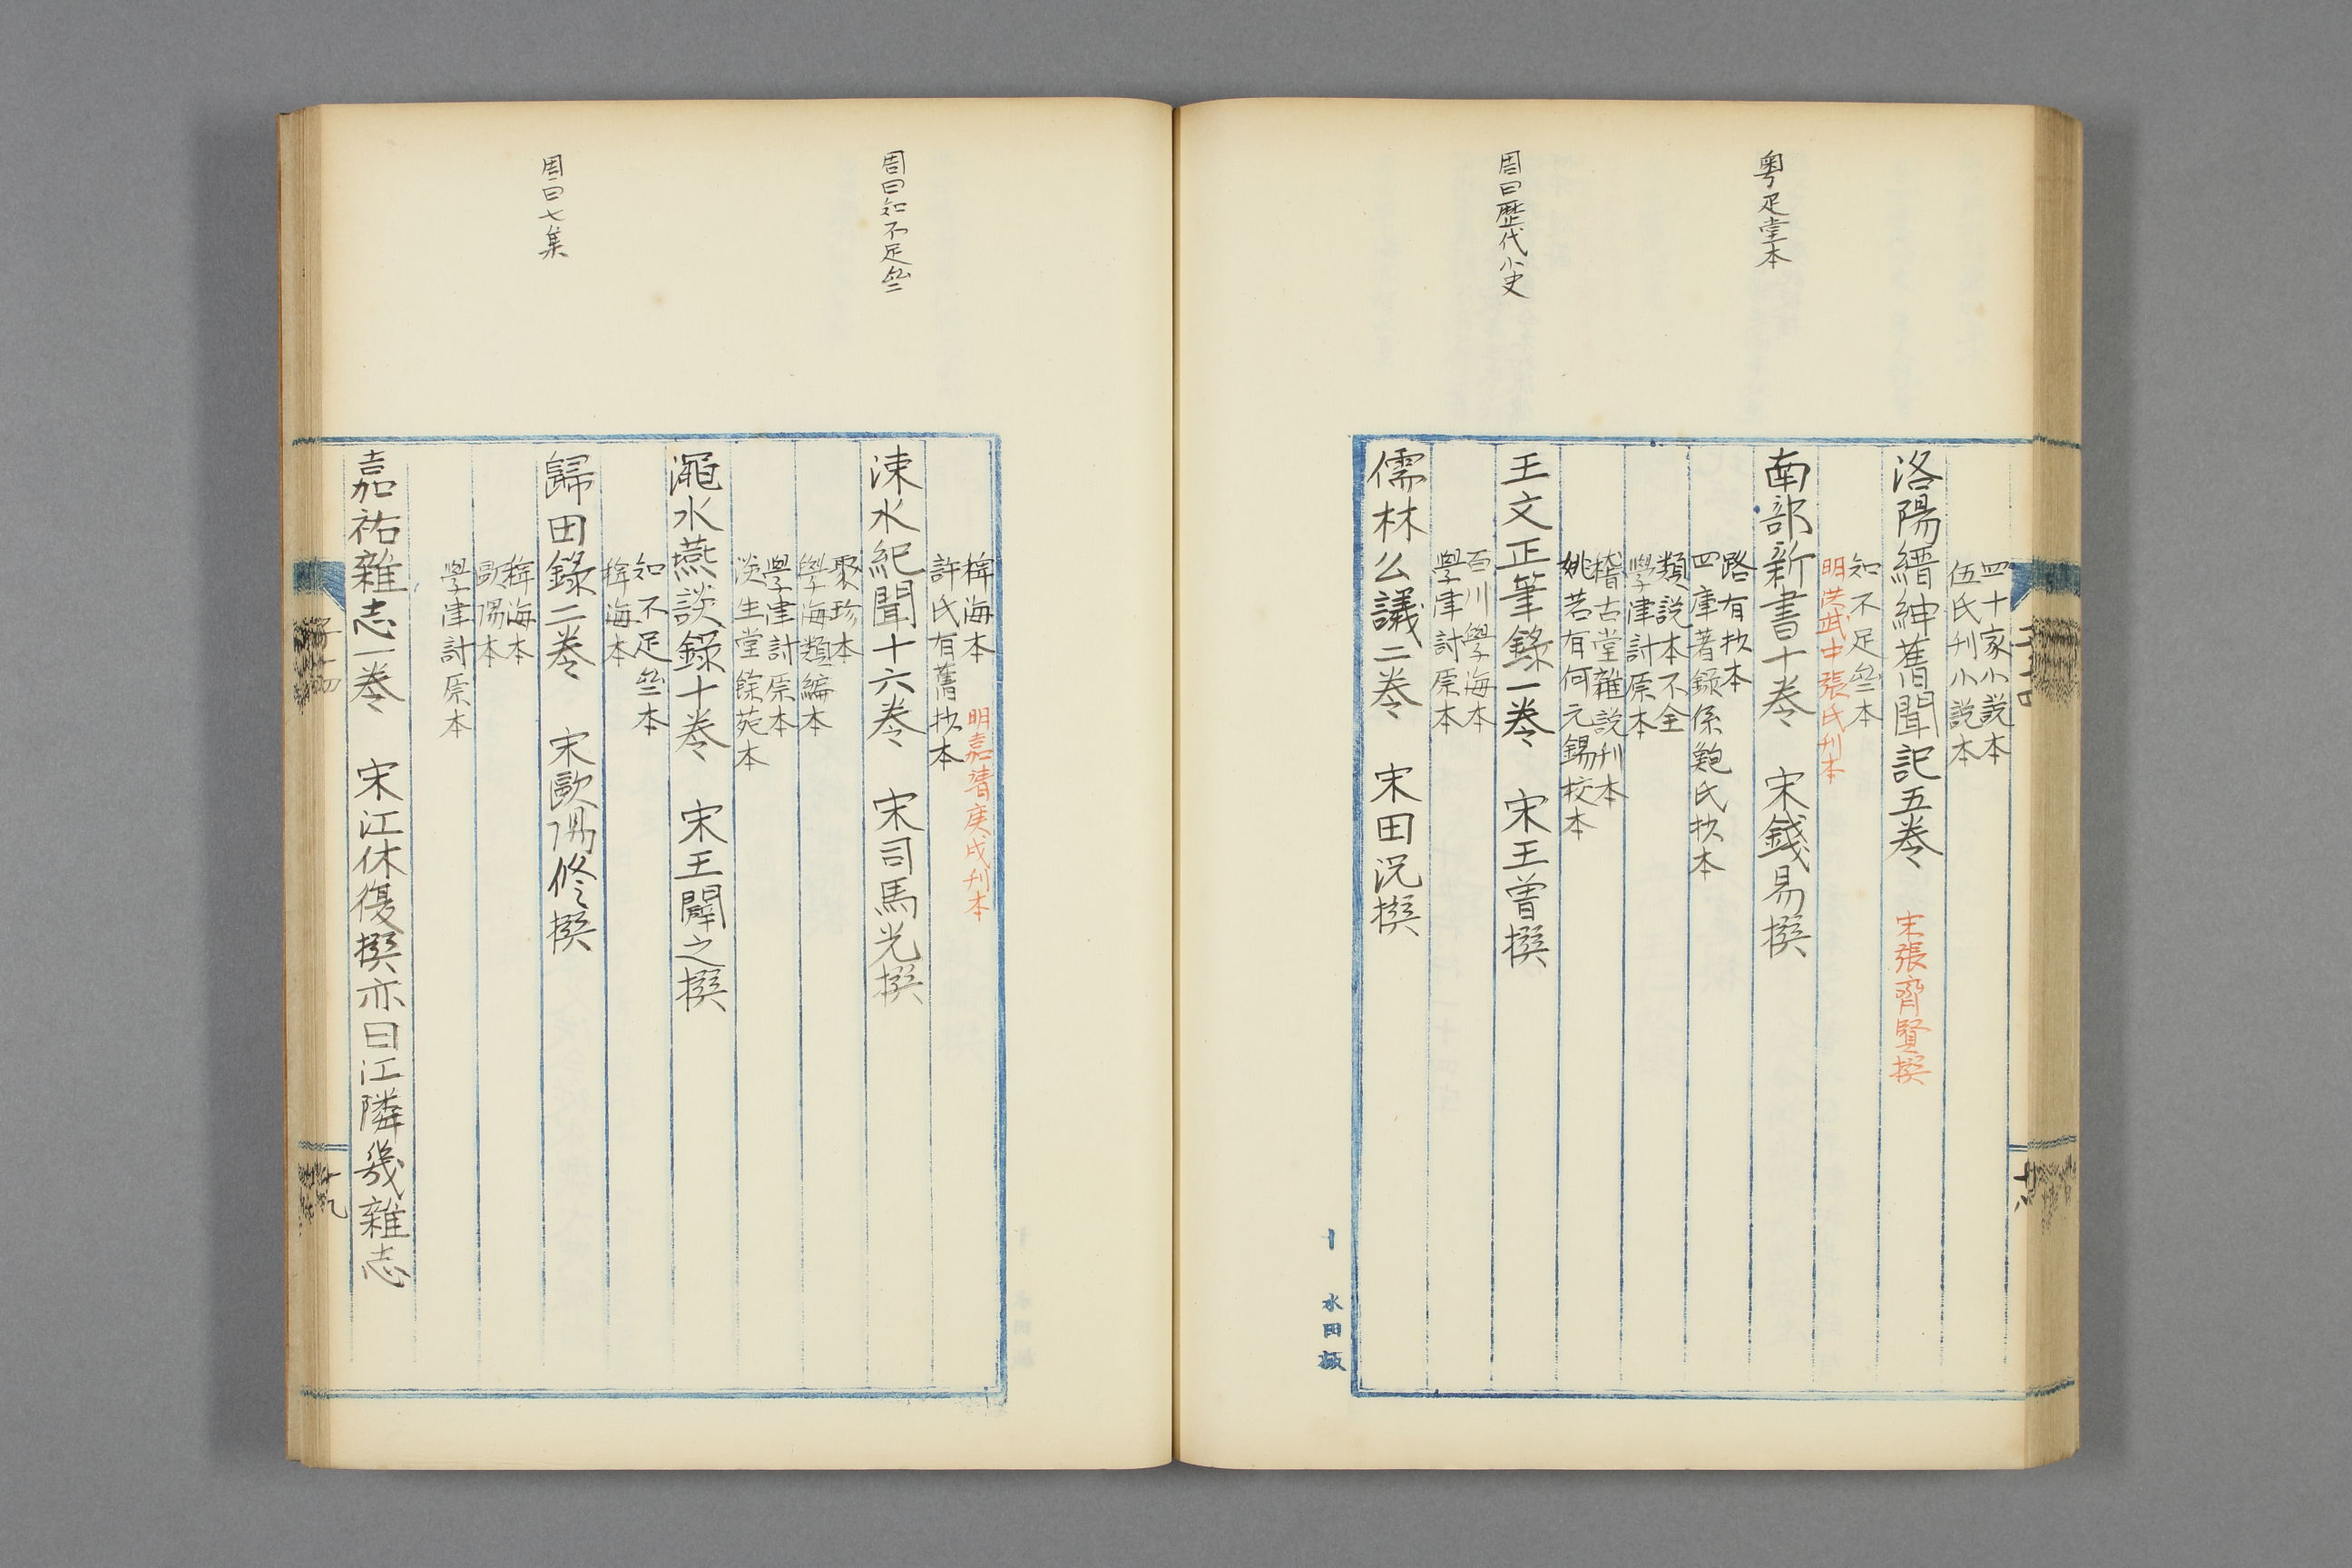 粤足堂本
周曰歷代小史
四十家小説本
伍氏刊小説本
洛陽縉紳舊聞記五卷　宋張齊賢撰
知不足叄本
明洪武中張氏刊本
南部新書十卷　宋錢易撰
路有抄本
四庫著録係鮑氏抄本
類説本不全
學津討原本
稽古堂雜説刊本
姚若有何元錫校本
王文正筆錄一卷　宋王曾撰
百川學海本
學津討原本
儒林公議二卷　宋田況撰
水田版
周曰知不足叄
周曰七集
稗海本　明嘉靖庚戌刊本
許氏有舊抄本
涑水紀聞十六卷　宋司馬光撰
聚珍本
學海類編本
學津討原本
淡生堂餘苑本
澠水燕談錄十卷　宋王闢之撰
知不足叄本
稗海本
歸田錄二卷　宋歐陽修撰
稗海本
歐陽本
學津討原本
嘉祐雜志一卷　宋江休復撰亦曰江隣幾雜志